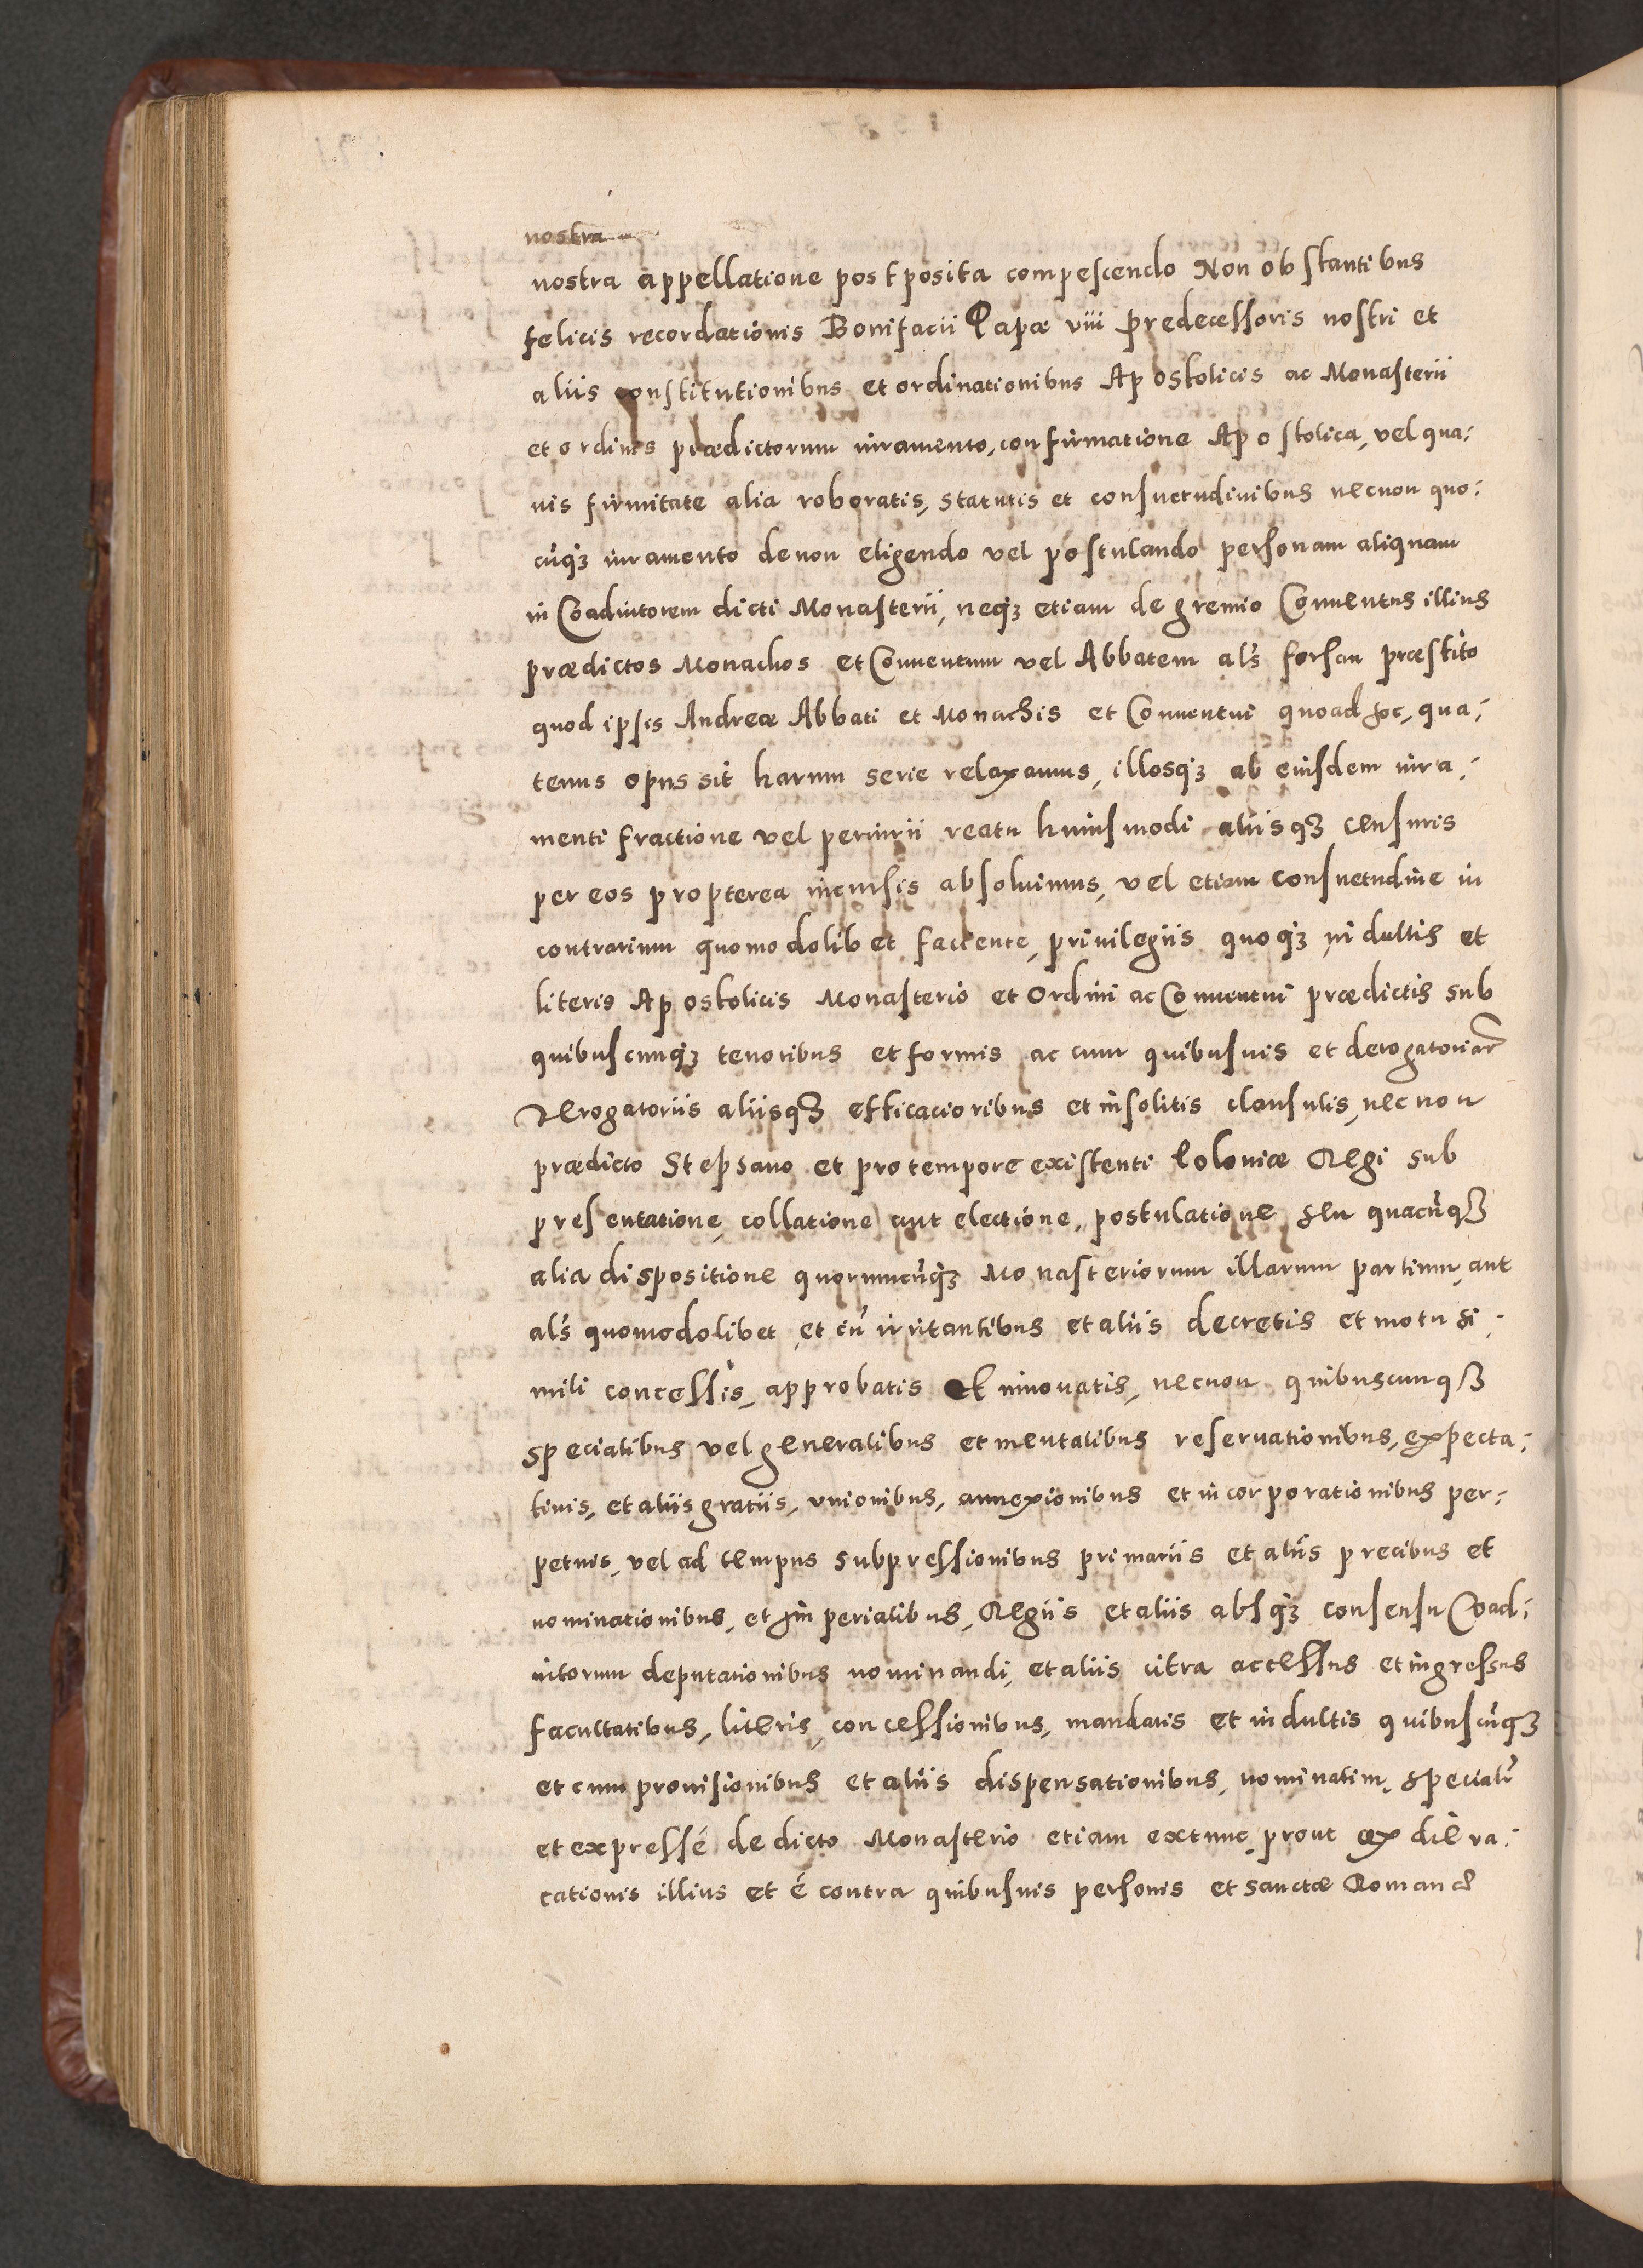 nostra
nostra appellatione postposita compescendo Non obstantibus
felicis recordationis Bonifacii Papæ viii predecessoris nostri et
aliis constitutionibus et ordinationibus Apostolicis ac Monasterii
et ordinis prædictorum iuramento, confirmatione Apostolica, vel qua-
uis firmitate alia roboratis, statutis et consuetudinibus necnon quo-
cūqꝫ iuramento de non eligendo vel postulando personam aliquam
in Coadiutorem dicti Monasterii, neqꝫ etiam de gremio Conuentus illius
prædictos Monachos et Conuentum vel Abbatem als forsan præstito
quod ipsis Andreæ Abbati et Monachis et Conuentui quoad hoc, qua-
tenus opus sit harum serie relaxamus, illosqꝫ ab eiusdem iura-
menti fractione vel periurii reatu huiusmodi aliisqꝫ censuris
per eos propterea incursis absoluimus, vel etiam consuetudine in
contrarium quomodolibet faciente, priuilegiis quoqꝫ indultis et
literis Apostolicis Monasterio et Ordini ac Conuentui prædictis sub
quibuscunqꝫ tenoribus et formis ac cum quibusuis et derogatoriar
derogatoriis aliisqꝫ efficacioribus et insolitis clausulis, necnon
prædicto Stephano et pro tempore existenti Poloniæ Regi sub
presentatione, collatione aut electione, postulatione seu quacūqꝫ
alia dispositione quorumcūqꝫ Monasteriorum illarum partium, aut
als quomodolibet, et cū irritantibus et aliis decretis et motu si-
mili concessis, approbatis et innouatis, necnon quibuscunqꝫ
specialibus vel generalibus et mentalibus reseruationibus, expecta-
tiuis, et aliis gratiis, vnionibus, annexionibus et incorporationibus per-
petuis, vel ad tempus subpressionibus primariis et aliis precibus et
nominationibus, et imperialibus, Regiis et aliis absqꝫ consensu Coad-
iutorum deputationibus nominandi, et aliis citra accessus et ingressus
facultatibus, literis, concessionibus, mandatis et indultis quibuscūqꝫ
et cum prouisionibus et aliis dispensationibus, nominatim, speciatī
et expressé de dicto Monasterio etiam extunc, prout ex die va-
cationis illius et é contra quibusuis personis et sanctæ Romanæ